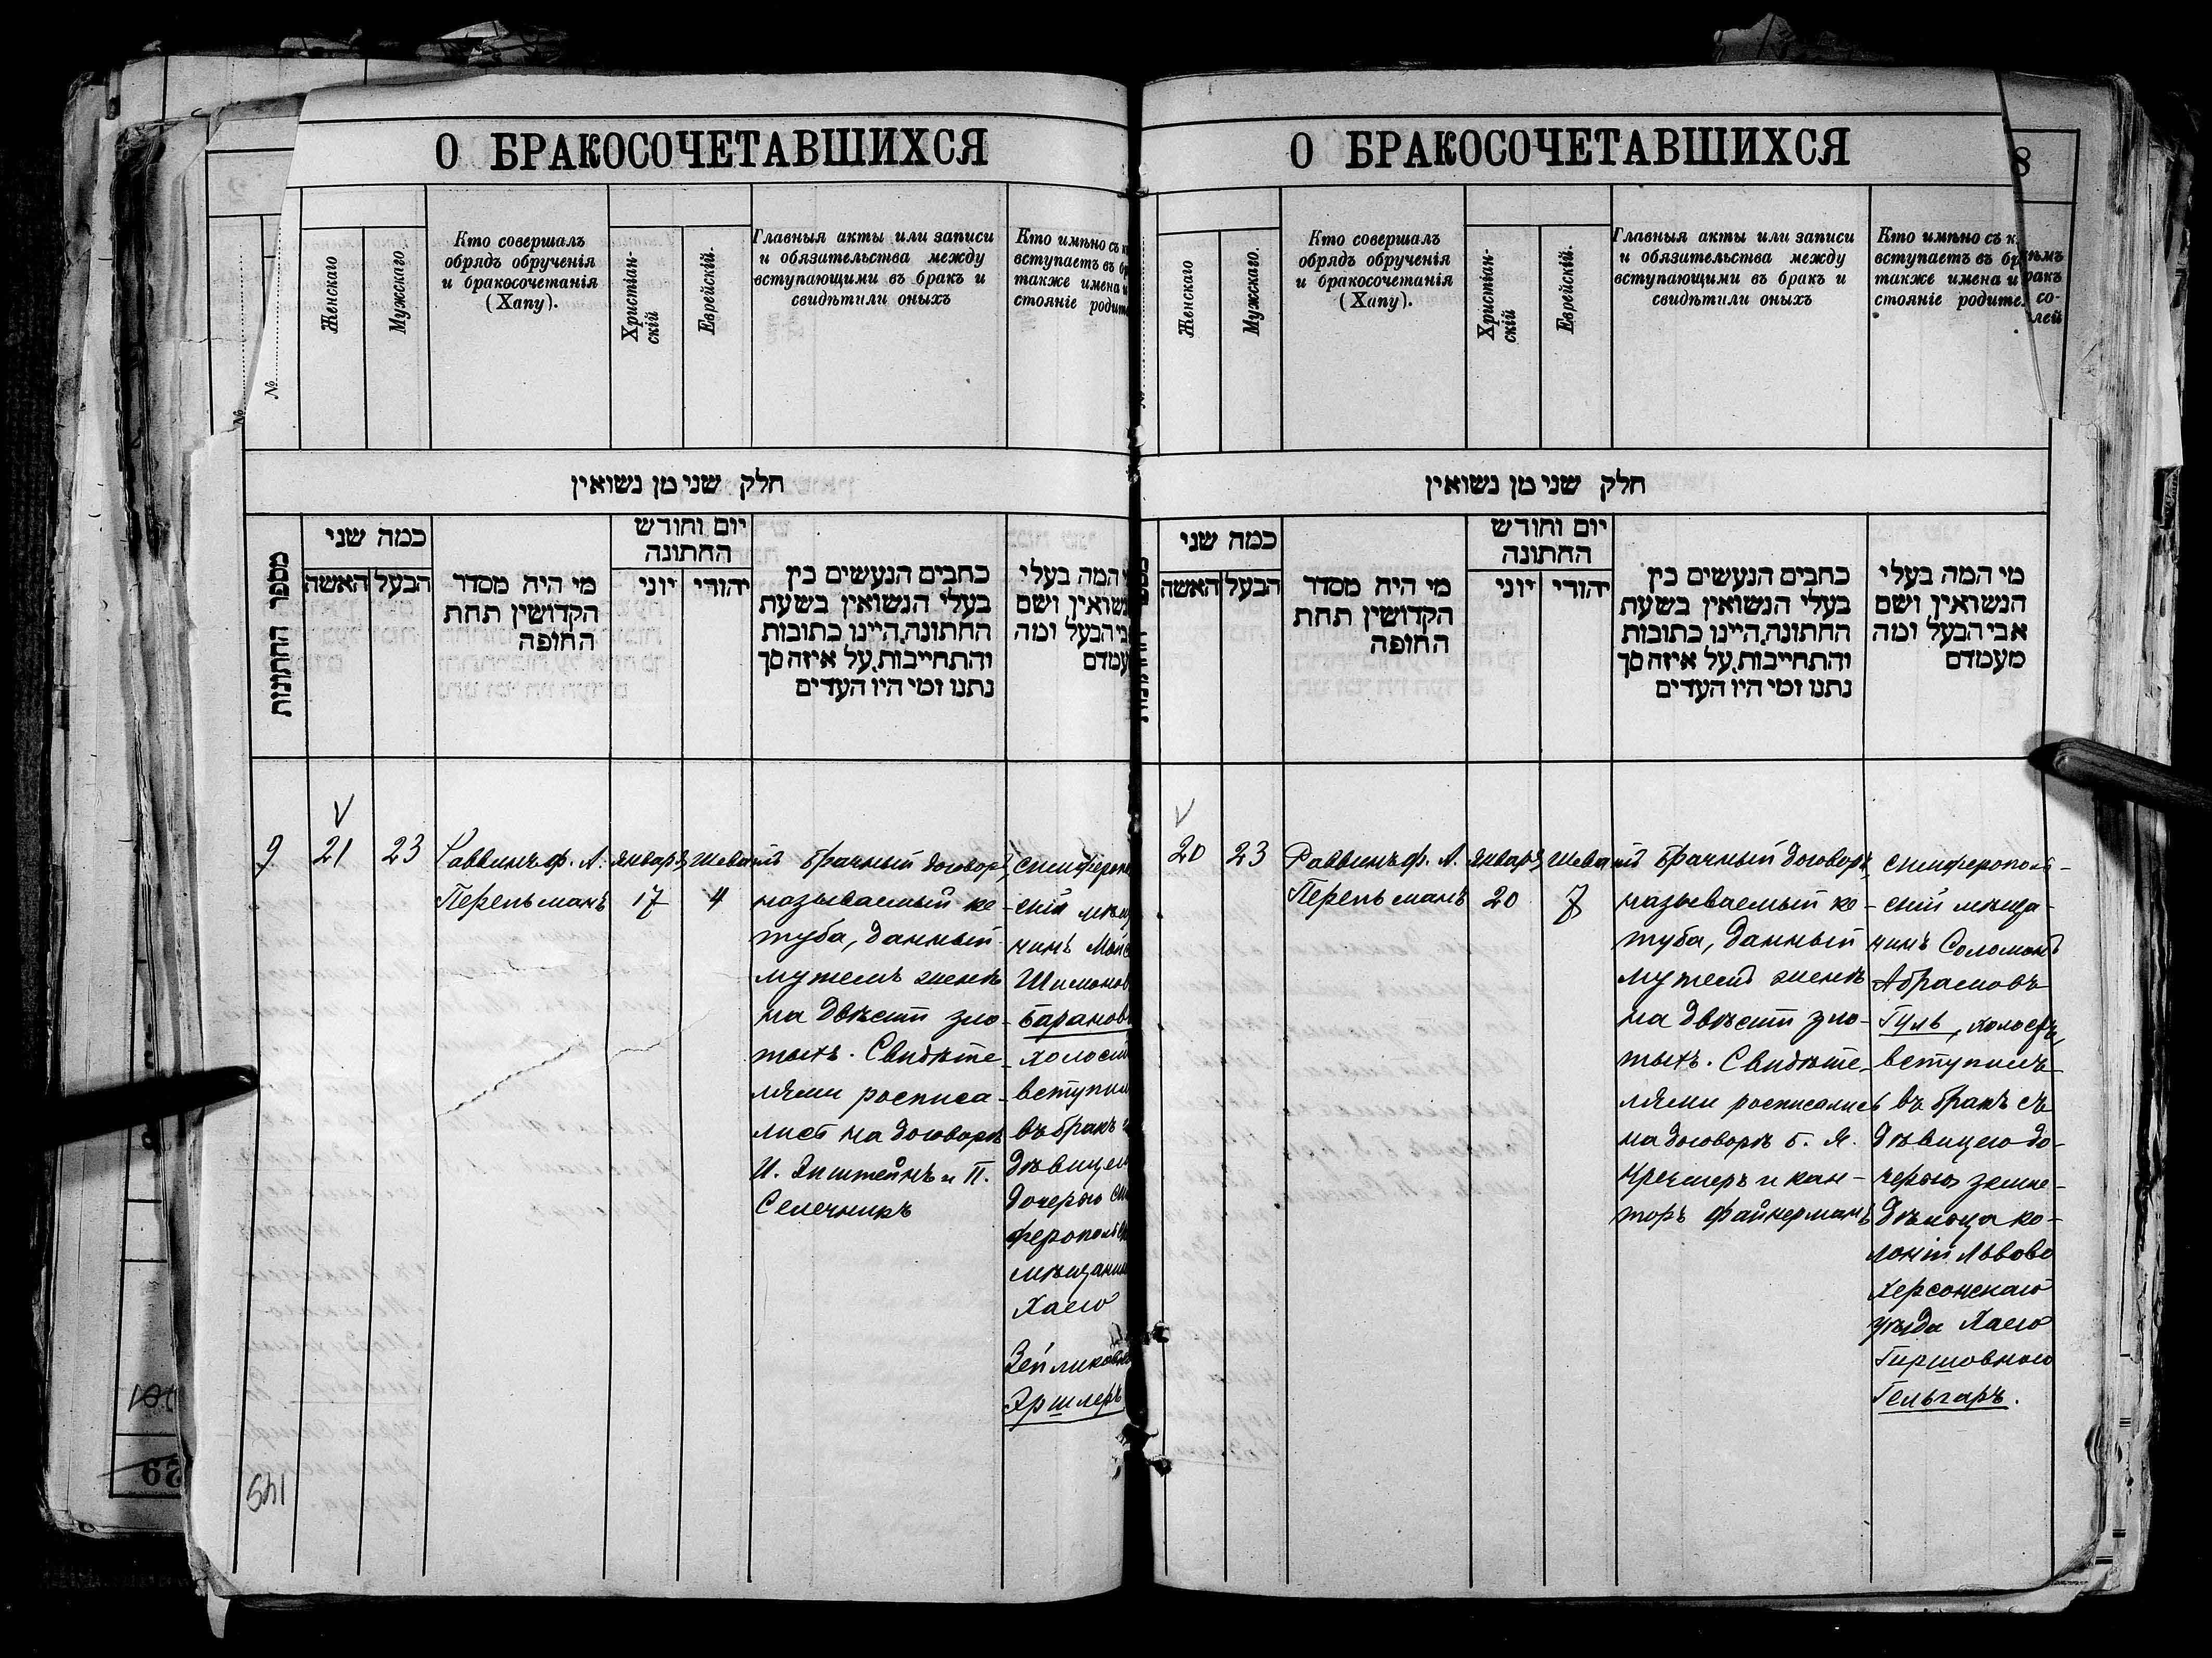 О БРАКОСОЧЕТАВШИХСЯ
№
№
Женскаго
Мужскаго
Кто совершалъ
обрядъ обрученія
и бракосочетанія
(Хапу).
Христіан-
скій
Еврейскій.
Главныя акты или записи
и обязательства между
вступающими въ бракъ и
свидѣтили оныхъ
Кто имѣно съ к
вступаетъ въ б
также имена и
стояніе родит
חלק שני מן נשואין
מספר החתונות
כמה שני
האשה
הבעל
מי היה מסדר
הקדושין תחת
החופה
יום וחודש
החתונה
יוני
יהודי
כתבים הנעשים בין
בעלי הנשואין בשעת
החתונה,היינו כתובות
והתחייבות,על איזה סך
נתנו ומי היו העדים
המה בעלי
נשואין ושם
הבעל ומה
עמדם
9
21
23
Раввинъ Ф. А.
Перельманъ
Январь
17
Шеватъ
4
Брачный договоръ,
называемый ке-
туба, данный
мужемъ женѣ
на двѣсти зло-
тыхъ. Свидѣте-
лями росписа-
лись на договорѣ
И. Эпштейнъ и П.
Селечникъ
Симфероп
скій мѣщ
чинъ
Шимонов
Баранов
холост
вступил
въ бракъ
дѣвицею
дочерью Си
ферополь
мѣщани
Хаею
Зейликов
Эршлеръ
149
О БРАКОСОЧЕТАВШИХСЯ
8
Женскаго
Мужскаго.
Кто совершалъ
обрядъ обрученія
и бракосочетанія
(Хапу).
Христіан-
скій
Еврейскій.
Главныя акты или записи
и обязательства между
вступающими въ бракъ и
свидѣтили оныхъ
Кто имѣно съ к
вступаетъ въ бр
также имена и
стояніе родите
ѣмъ
ракъ
со-
лей
חלק שני מן נשואין
כמה שני
האשה
הבעל
מי היה מסדר
הקדושין תחת
החופה
יום וחודש
החתונה
יוני
יהודי
כתבים הנעשים בין
בעלי הנשואין בשעת
החתונה,היינו כתובות
והתחייבות,על איזה סך
נתנו ומי היו העדים
מי המה בעלי
הנשואין ושם
אבי הבעל ומה
מעמדם
20
23
Раввинъ Ф. А.
Перельманъ
Январь
20
Шеватъ
7
Брачный договоръ,
называемый ке-
туба, данный
мужемъ женѣ
на двѣсти зло-
тыхъ. Свидѣте-
лями росписались
на договорѣ Б. Я.
Кремеръ и кан-
торъ Файнерманъ
Симферополь-
скій мѣща-
нинъ Соломонъ
Абрамовъ
Гуль, холостъ,
вступилъ
въ бракъ съ
дѣвицею до-
черью земле-
дѣльца ко-
лоніи Львово
Херсонскаго
уѣзда Хаею
Гиршовною
Гельгаръ.